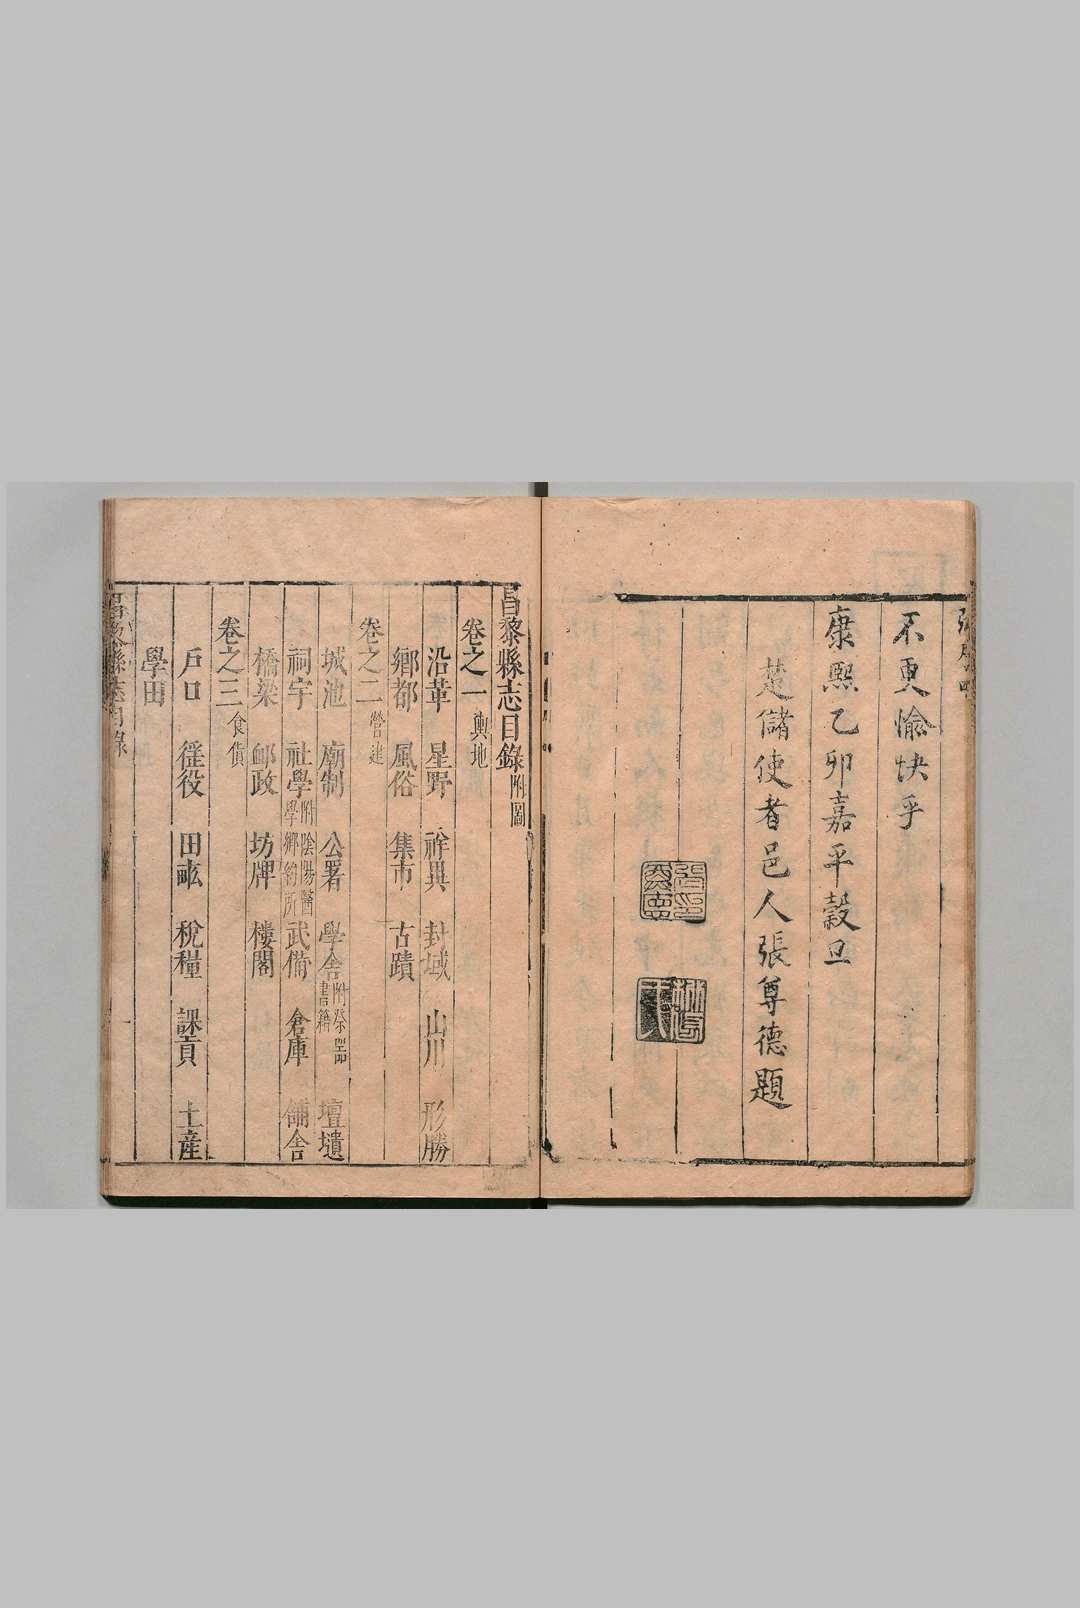 不更愉快乎
康熙乙卯嘉平穀旦
楚儲使者邑人張尊德題
昌黎縣志目錄附圖
卷之一輿地
沿革 星野 祥異 封域 山川 形勝
鄉都 風俗 集市 古蹟
卷之二營建
城池 廟制 公署 學舍附祭器書籍 壇壝
祠宇 社學附陰陽醫學鄉約所 武備 倉庫 舖舍
橋梁 郵政 坊牌 樓閣
卷之三食貨
戶口 徭役 田畝 稅糧 課貢 土産
學田
昌黎縣志目錄